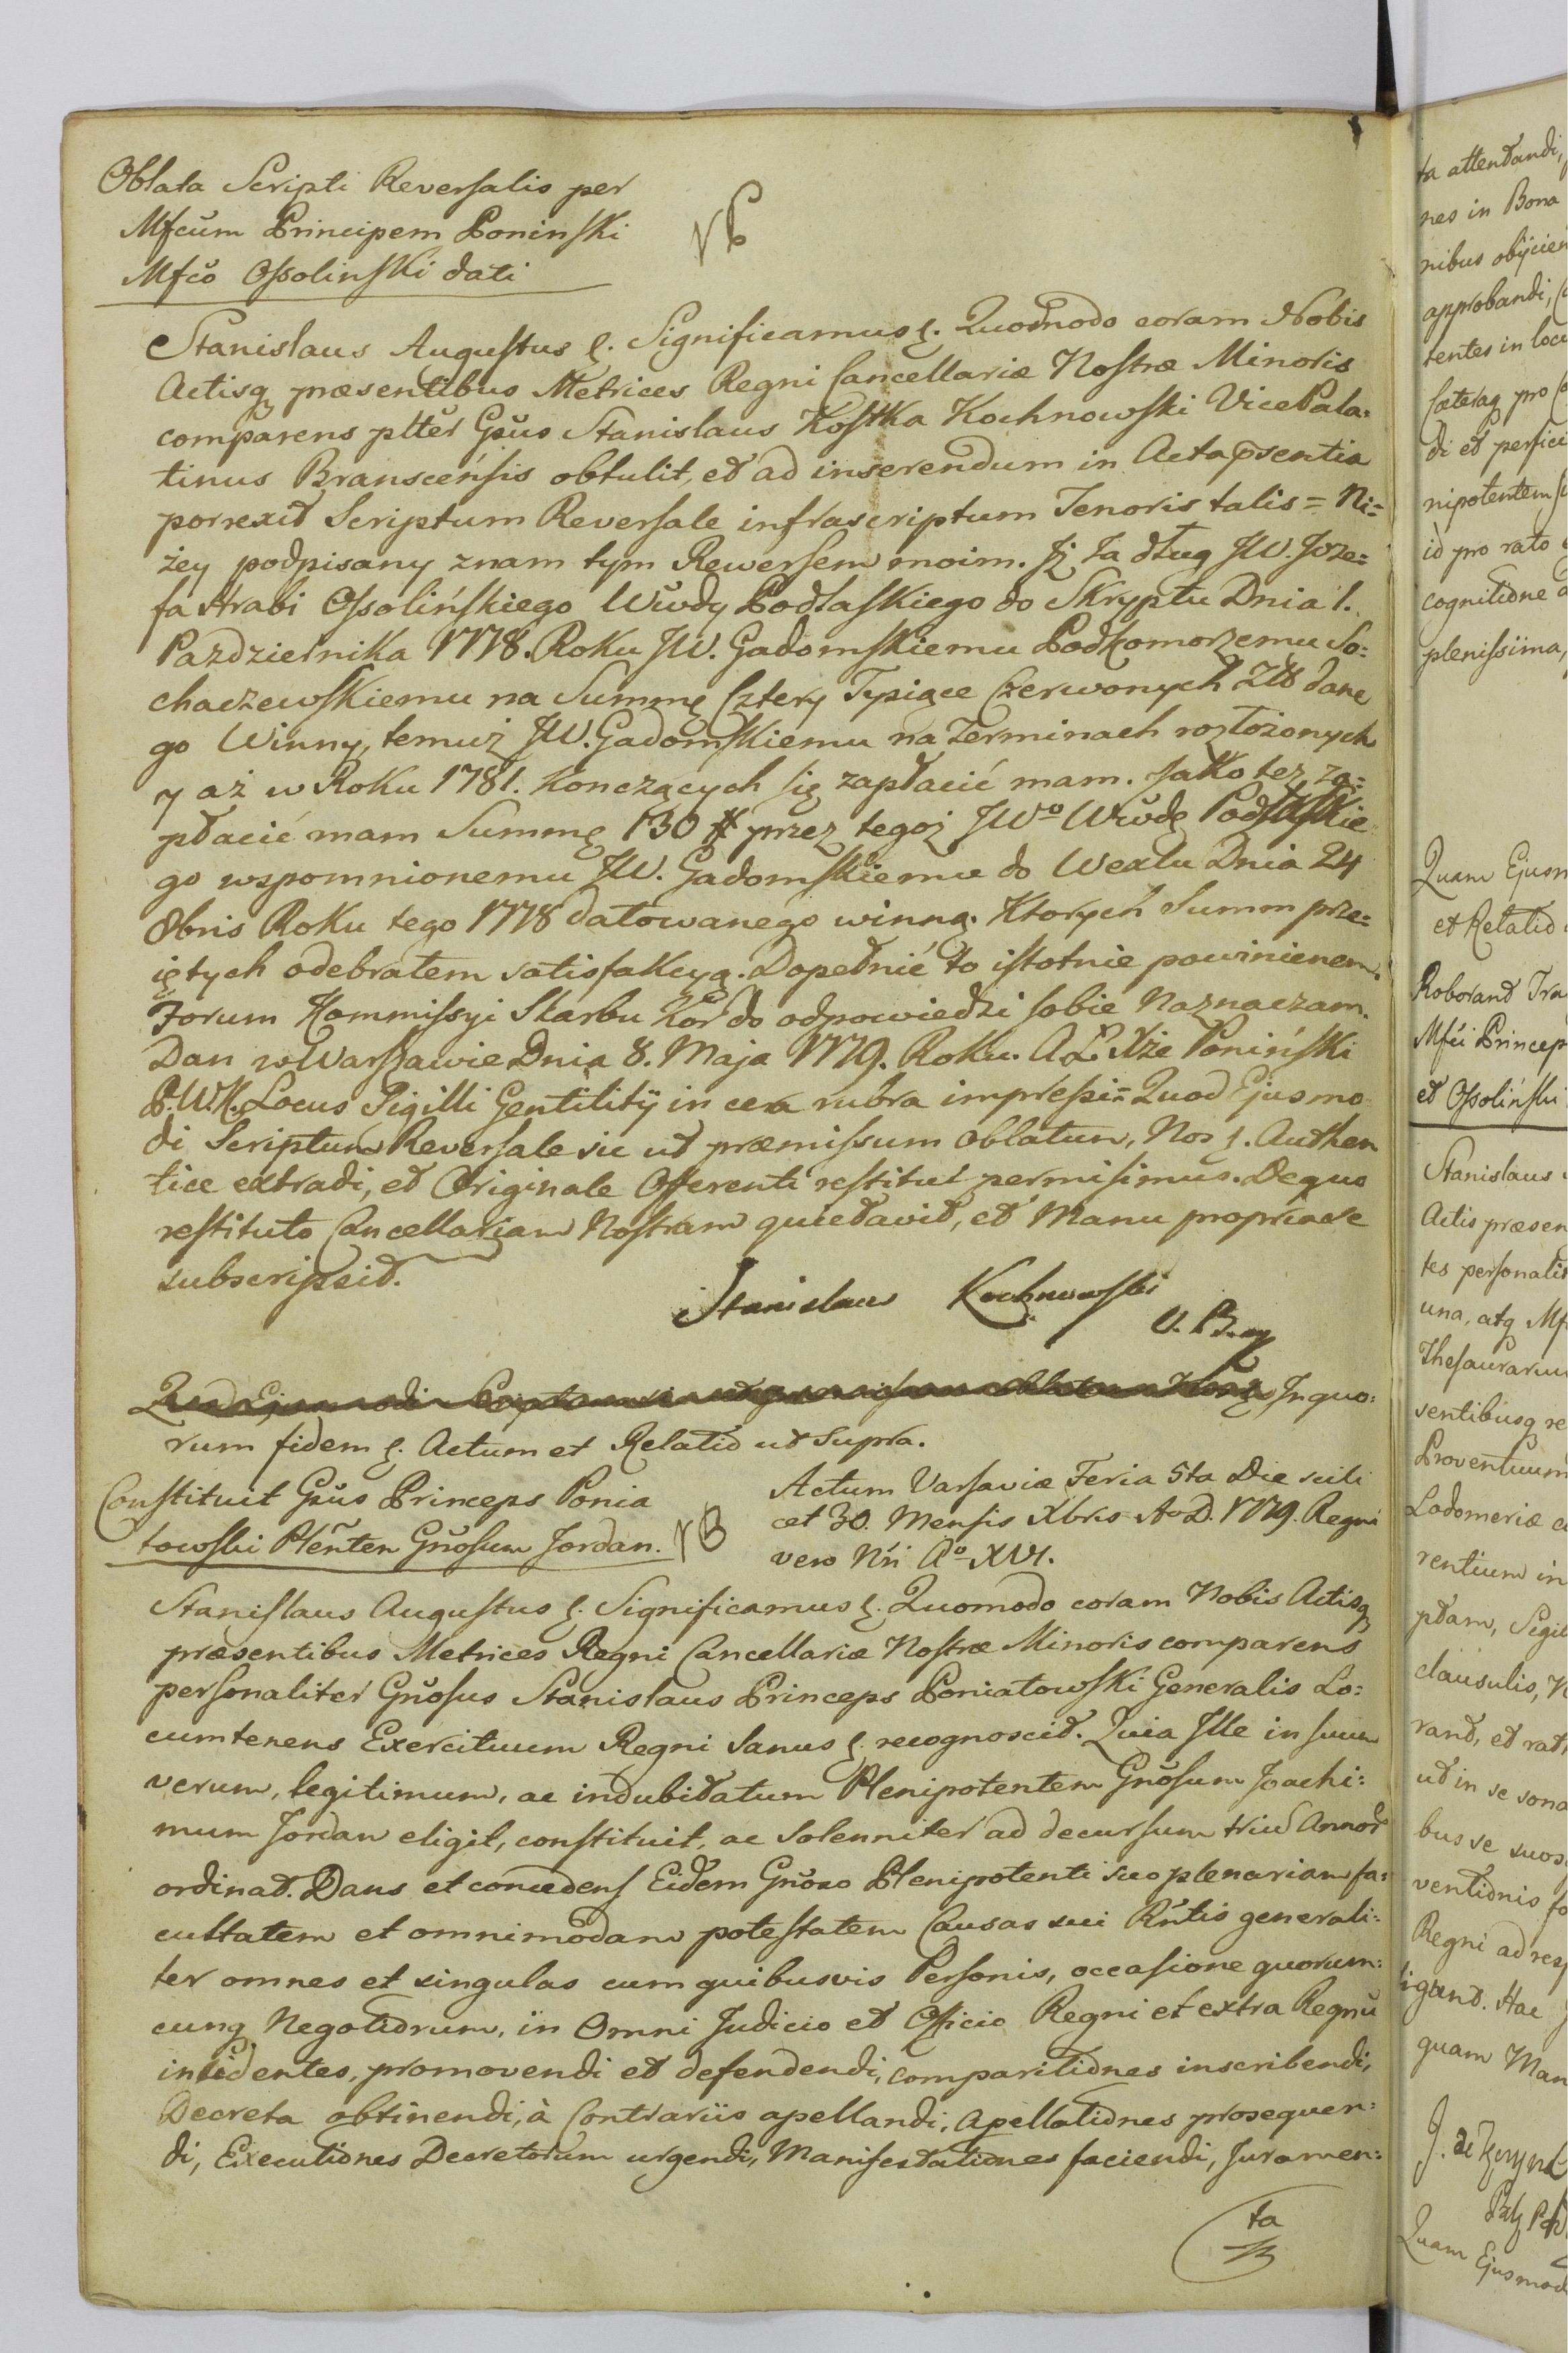 Oblata Scripti Reversalis per
Mfcum Principem Poninski
Mfco Ossolinski dati
NB
Stanislaus Augustus &. Significamus &. Quomodo coram Nobis
Actisq præsentibus Metrices Regni Cancellariæ Nostræ Minoris
comparens pltter Gsus Stanislaus Kostka Kochnowski VicePala=
tinus Branscensis obtulit, et ad inserendum in Acta psentia
porrexit Scriptum Reversale infrascriptum Tenoris talis = Ni=
żey podpisany znam tym Rewersem moim. Jż Ja dług JW. Joze=
fa Hrabi Ossolińskiego Wwdy Podlaskiego do Skryptu Dnia 1.
Pazdziernika 1778. Roku JW. Gadomskiemu Podkomorzemu So=
chaczewskiemu na Summę Cztery Tysiące Czerwonych Złł dane
go Winny, temuż JW. Gadomskiemu na Terminach rozłożonych
y aż w Roku 1781. konczących się zapłacić mam. Jako też za=
płacić mam Summę 130 # przez tegoż JWo Wwdę Podlaskie
go wspomnionemu JW. Gadomskiemu do Wexlu Dnia 24
8bris Roku tego 1778 datowanego winną. Ktorych Summ prze=
iętych odebrałem satisfakcyą. Dopełnić to istotnie powinienem.
Forum Kommissyi Skarbu Kor do odpowiedzi sobie Naznaczam.
Dan w Warszawie Dnia 8. Maja 1779. Roku. A Ł Xże Poniński
P.W.K. Locus Sigilli Gentilitij in cera rubra impressi = Quod Ejusmo
di Scriptum Reversale sic ut præmissum oblatum, Nos &. Authen
tice extradi, et Originale Offerenti restitui permisimus. De quo
restituto Cancellariam Nostram quietavit, et Manu propria se
subscripsit.
Stanislaus Kochnowski
V. B. mp
Quod Ejusmodi Scriptum sic ut præmissum oblatum Nos & Jn quo=
rum fidem &. Actum et Relatio ut supra.
Constituit Gsus Princeps Ponia
towski Plenten Gnosum Jordan.
NB
Actum Varsaviæ Feria 5ta Die scili
cet 30. Mensis Xbris Ao D. 1779. Regni
vero Nri Ao XVI.
Stanislaus Augustus &. Significamus &. Quomodo coram Nobis Actisq
præsentibus Metrices Regni Cancellariæ Nostræ Minoris comparens
personaliter Gnosus Stanislaus Princeps Poniatowski Generalis Lo=
cumtenens Exercituum Regni Sanus &. recognoscit. Quia Jlle in suum
verum, legitimum, ac indubitatum Plenipotentem Gnosum Joachi=
mum Jordan eligit, constituit, ac solenniter ad decursum triu Annor
ordinat. Dans et concedens Eidem Gnoso Plenipotenti suo plenariam fa=
cultatem et omnimodam potestatem Causas sui Rntis generali=
ter omnes et singulas cum quibusvis Personis, occasione quorum=
cunq Negotiorum, in Omni Judicio et Officio Regni et extra Regnu
incidentes, promovendi et defendendi, comparitiones inscribendi,
Decreta obtinendi, à Contrariis apellandi, Apellationes prosequen=
di, Executiones Decretorum urgendi, Manifestationes faciendi, Juramen=
ta
ta attentandi,
nes in Bona
nibus obijcien
approbandi,
tentes in loc
Cæteraq pro
di et perfici
nipotentem
id pro rato
cognitione
plenissima,
Quam Ejusm
et Relatio
Roborand Tra
Mfci Princep
et Ossoliński
Stanislaus
Actis præsen
tes personalit
una, atq Mf
Thesaurariu
sentibusq re
Proventuum
Lodomeriæ
rentium in
pdam, Sigil
clausulis,
rand, et rat
ut in se sona
bus se suos
ventionis fo
Regni ad resp
ligand. Hac
quam Man
Quam Ejusmod